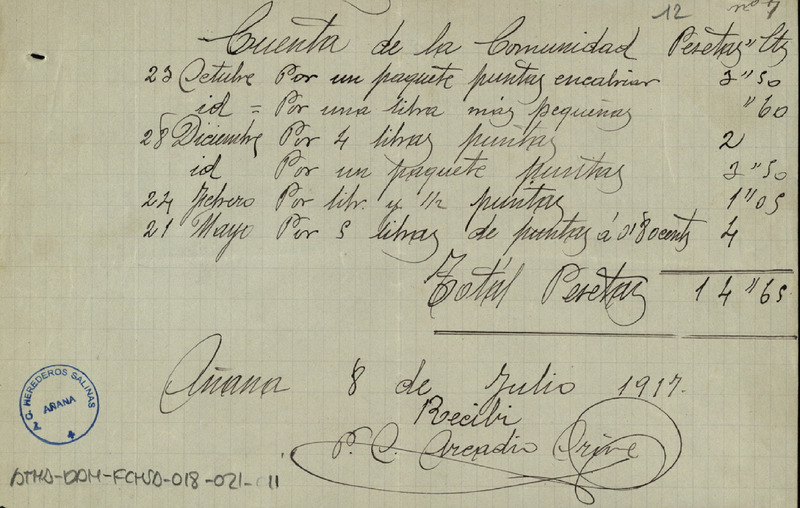 12 nº 7
Cuenta de la Comunidad Pesetas " Cts
23 Octubre Por un paquete puntas encabriar 3 " 50
id = Por una libra más pequeñas " 60
28 Diciembre Por 4 libras puntas 2
id Por un paquete puntas 3 " 50
24 Febrero Por libr. y 1/2 puntas 1 " 05
21 Mayo Por 5 libras de puntas á 0'80 cents 4
Total Pesetas 14 " 65
Añana 8 de Julio 1917.
Recibi
P. O. Arcadio Orive
HEREDEROS SALINAS
AÑANA
ATHA-DAH-FCHSA-018-021-011